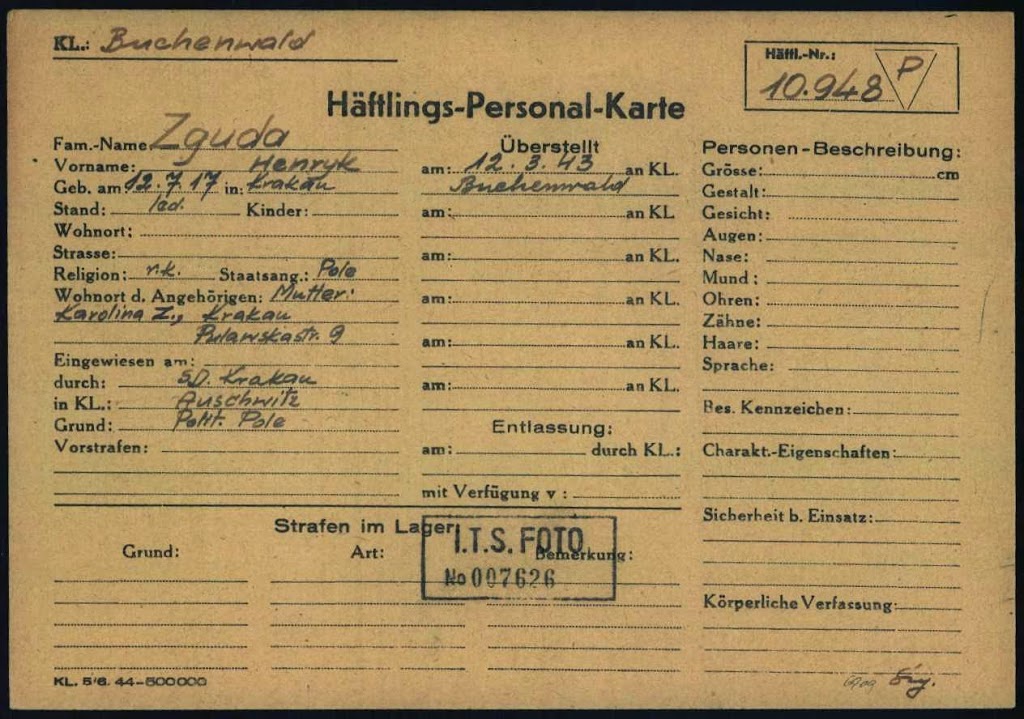 KL.: Buchenwald
Häftl.-Nr.:
10.948 P
Häftlings-Personal-Karte
Fam.-Name Zguda
Vorname: Henryk
Geb. am 12.7.17 in: Krakau
Stand: led. Kinder:
Wohnort:
Strasse:
Religion: r.k. Staatsang.: Pole
Wohnort d. Angehörigen: Mutter:
Karolina Z., Krakau
9
Eingewiesen am:
durch: SD. Krakau
in KL.: Auschwitz
Grund: Polit. Pole
Vorstrafen:
Überstellt
am: 12.3.43 an KL.
Buchenwald
am: an KL
am: an KL.
am: an KL.
am: an KL.
am: an KL.
Entlassung:
am: durch KL.:
mit Verfügung v :
Personen-Beschreibung:
Grösse: cm
Gestalt:
Gesicht:
Augen:
Nase:
Mund:
Ohren:
Zähne:
Haare:
Sprache:
Bes. Kennzeichen:
Charakt.-Eigenschaften:
Sicherheit b. Einsatz:
Körperliche Verfassung:
Strafen im Lager:
Grund: Art: Bemerkung:
I.T.S. FOTO
No 007626
KL. 5/6. 44-500000